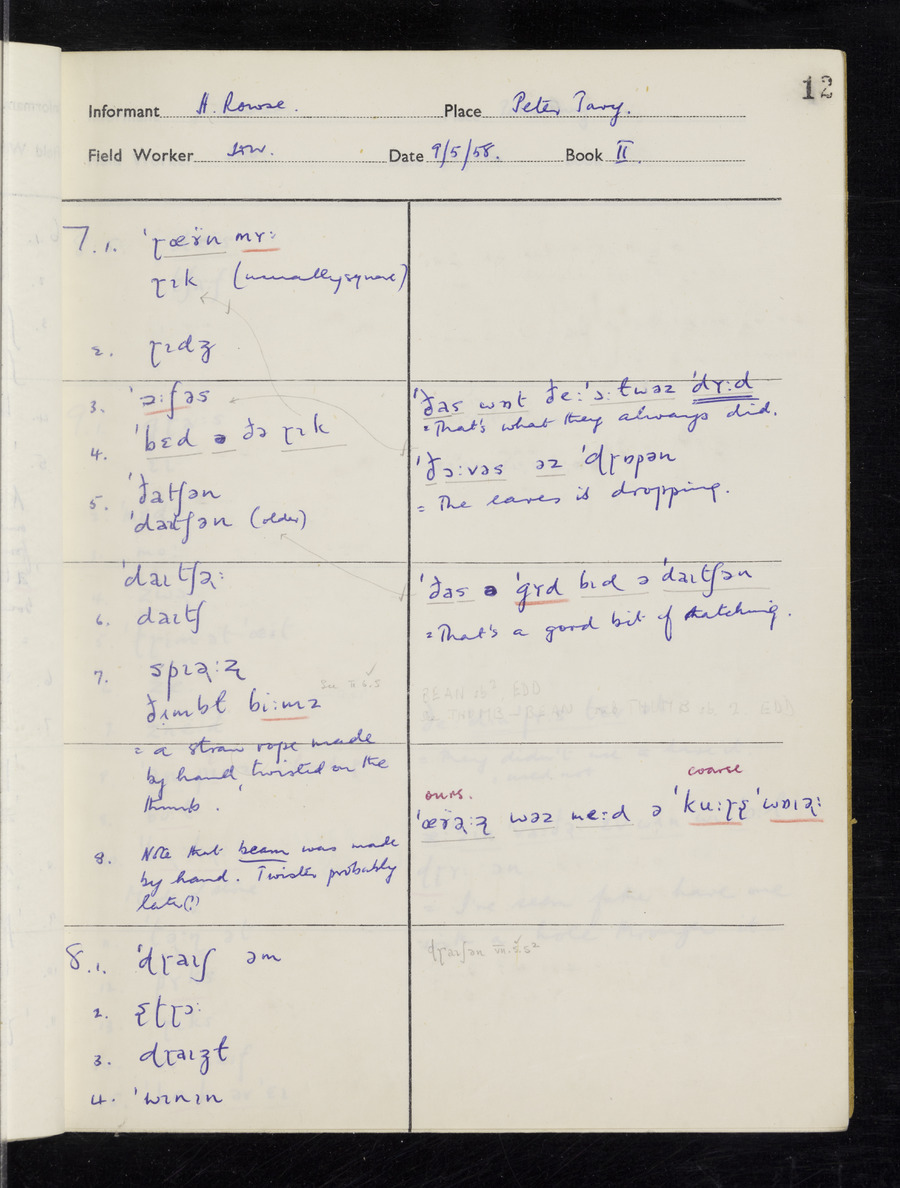 12
Informant H. Rowse. Place Peter Tavy.
Field Worker Date 9/5/58. Book II.
7.1. ˈɽœr̈n mʏː
ɽɪk (usually square)
2. ɽɪdʒ
3. ˈɔːfəs
4. ˈbɛd ə ðə ɽɪk
5. ˈðatʃən
ˈdaɪtʃən (older)
ˈdaɪtʃəː
6. daɪtʃ
7. spɪəːz
bɪːmz
= a straw rope made
by hand, twisted on the
thumb.
8. Note that beam was made
by hand. Twister probably
later(?)
8.1. ˈdɽaɪʃ əm
2.
3. dɽaɪʒt
4. ˈwɪnɪn
ˈðas wɒt ðeːˈɔːtwəz ˈdʏːd
= That's what they always did.
ˈðəːvəs əz ˈdɽɒpən
= The eaves is dropping.
ˈðas ə ˈgʏd bɪd ə ˈdaɪtʃən
= That's a good bit of thatching.
BEAN sb² EDD
THUMB-BEAN THUMB sb 2 EDD
ours. coarse
wəz meːd ə